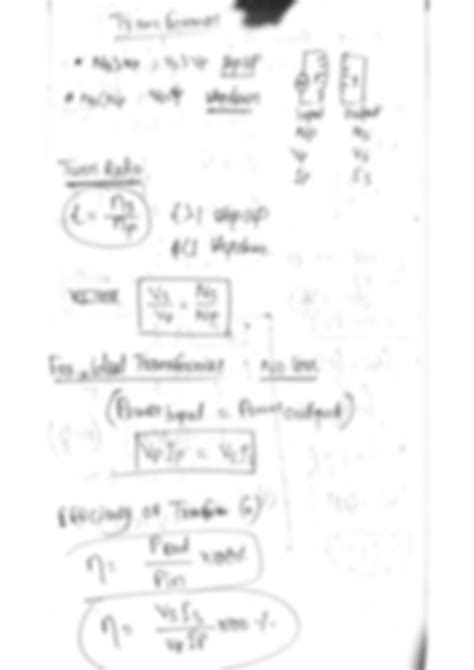 Transformer
• Ns>Np : Vs>Vp stepup
• Ns<Np : stepdown
Input Output
Np Ns
Vp Vs
Ip Is
Turn Ratio
r = ns/np
r>1 stepup
r<1 stepdown
Vs/Vp = Ns/Np
For Ideal Transformer No loss
(Power input = Power output)
VpIp = VsIs
Efficiency of Transform
η = Pout/Pin x100%
η = VsIs/VpIp x100 %